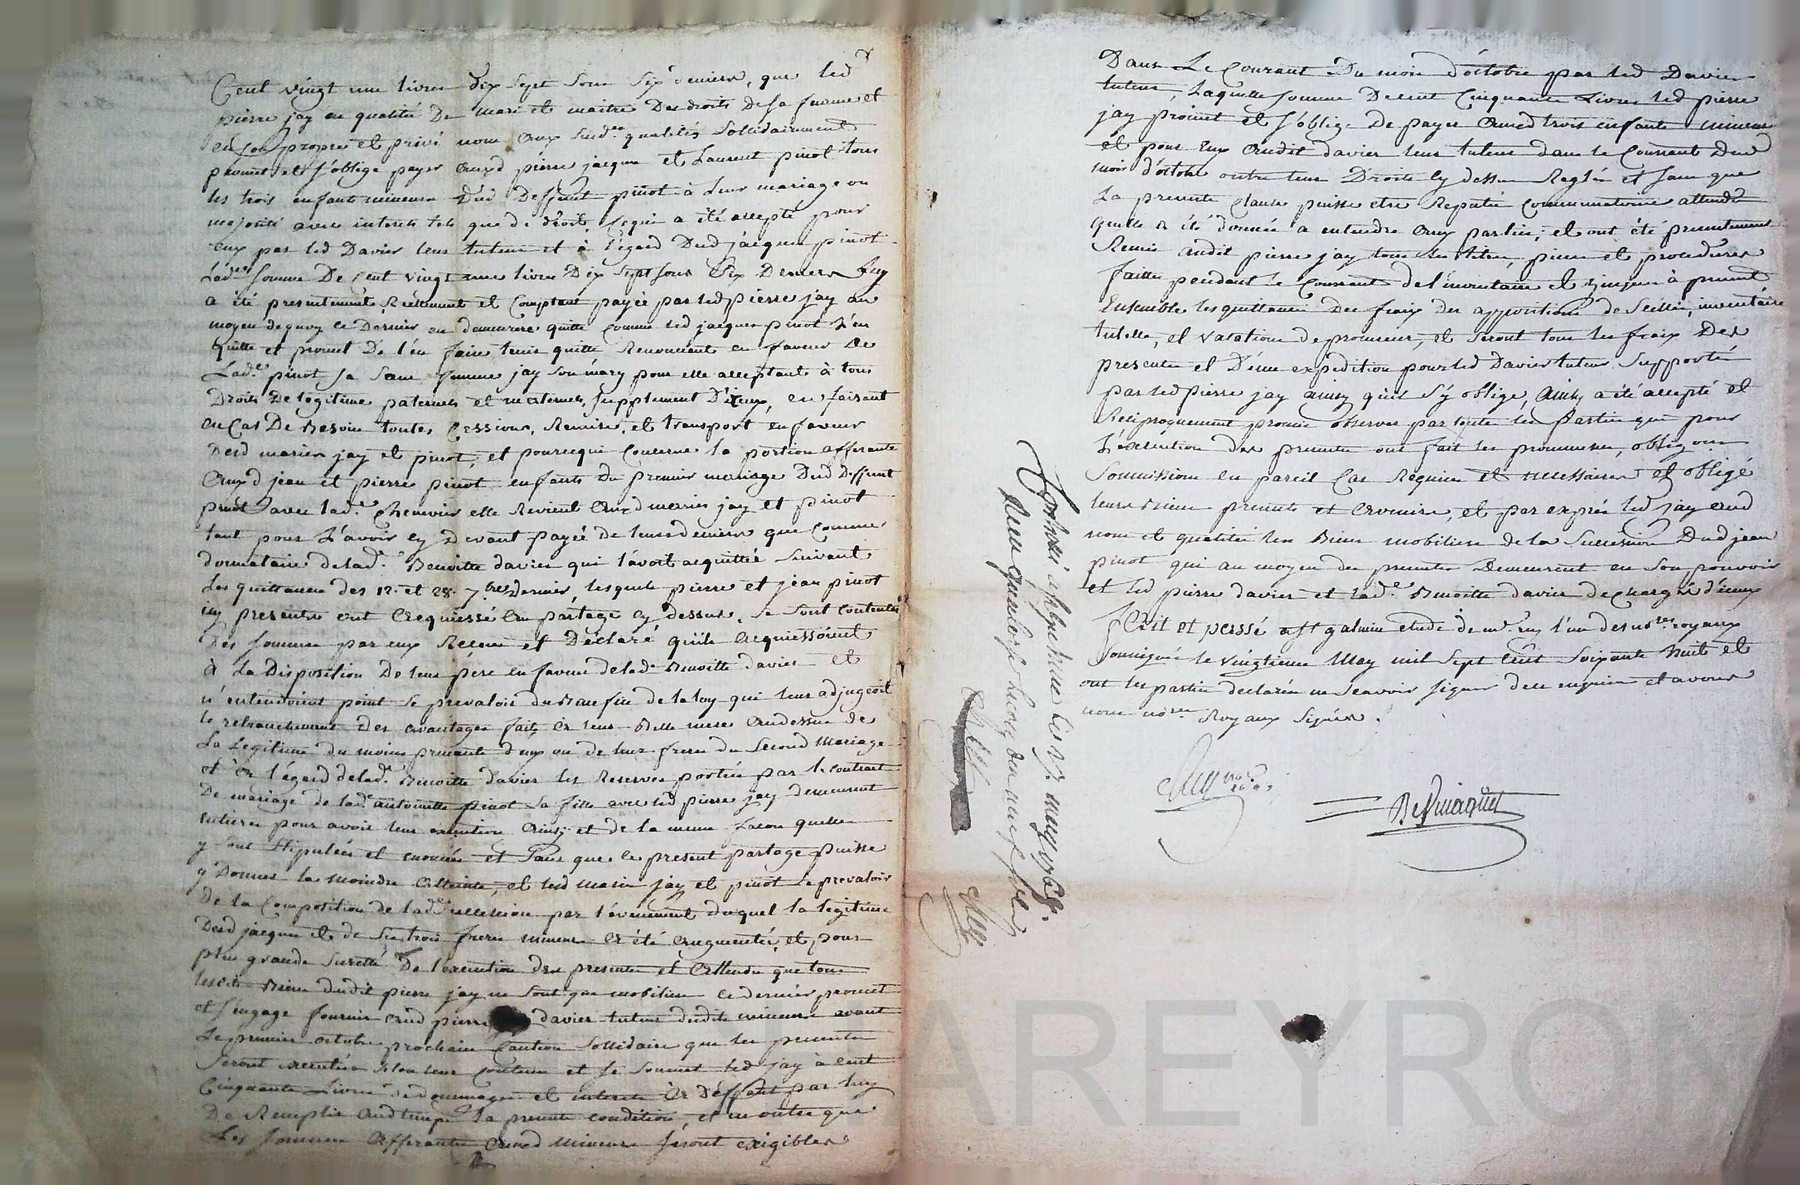 Cent vingt une livres dix sept sous six deniers, que led
pierre jay en qualité De mari et maitre Des droits De sa femme et
en son propre et privé nom aux susd. qualités sollidairement
promet et s'oblige payer auxd pierre jacques et Laurent pinot tous
les trois enfants mineurs Dud Deffunt pinot à Leur mariage ou
majorité avec interets tels que de droit, ce qui a été accepté pour
eux par led Davier leur tuteur et à l'égard Dud jacques pinot
Lad. somme De Cent vingt une livres Dix sept sous Six Deniers luy
a été presentement Réellement et Comptant payée par led pierre jay au
moyen de quoy ce Dernier en demeurera quitte comme led jacques pinot l'en
quitte et promet De l'en faire tenir quitte Renoncent en faveur De
Lad. pinot sa sœur femme jay son mary pour elle acceptants à tous
Droits De légitime paternels et maternels, supplement D'iceux, en faisant
en Cas De Besoin toutes Cessions, Remises, et transport en faveur
Desd mariés jay et pinot, et pour ce qui Concerne la portion afferante
auxd jean et pierre pinot enfants Du premier mariage Dud Deffunt
pinot avec lad. elle Revient auxd mariés jay et pinot
tant pour l'avoir cy Devant payée de leurs deniers que comme
donnataire de lad. Benoitte davier qui l'avoit acquittée suivant
Les quittances des 12. et 28. 7bre Dernier, lesquels pierre et jean pinot
icy presents ont acquiessé au partage cy dessus, se sont contentés
Des sommes par eux Recues et Déclaré qu'ils acquiessoient
à La Disposition De leur père en faveur de lad. Benoitte davier et
n'entendoient point se prevaloir du Benefice de la loy qui leur adjugeoit
le retranchement des avantages faits à leur Belle mere audessus de
La Legitime du moins prenante d'eux ou de leurs freres du Second Mariage
et à l'égard de lad. Benoitte davier les Reserves portées par le contract
De mariage de lad. antoinette pinot sa fille avec led pierre jay demeurent
entieres pour avoir leur execution ainsy et de la meme facon quelles
y sont stipulées et enoncées et sans que le present partage puisse
y Donner la moindre atteinte, et lesd mariés jay et pinot se prevaloir
De la Composition de lad. succession par l'evenement duquel la legitime
Dud jacques et de ses trois freres mineurs a été augmentée, et pour
plus grande sureté De l'execution des presentes et attendu que tous
lesdits Biens dudit pierre jay ne sont que mobiliers ce dernier promet
et s'engage fournir aud pierre davier tuteur desdits mineurs avant
Le premier octobre prochain Caution Sollidaire que les presentes
seront executées selon leur contenu et se soumet led jay à cent
Cinquante Livres de dommages et interets à deffaut par luy
De Remplir audit temps la presente condition, et en outre que
Les sommes afferantes auxd Mineurs seront exigibles
Dans Le Courant Du mois d'octobre par led Davier
tuteur, Laquelle somme De cent Cinquante Livres led pierre
jay promet et s'oblige De payer auxd trois enfants mineurs
et pour eux audit davier leur tuteur dans le Courant Dud
mois d'octobre outre leurs Droits cy dessus Reglés et sans que
La presente Clause puisse etre Reputée Comminatoire attendu
quelle a été donnée a entendre aux parties, et ont été presentement
Remis audit pierre jay tous les titres, pieces et procedures
faittes pendant le Courant de l'inventaire et jusques à present
Ensemble les quittances Des fraix des appositions de Scellés, inventaire
tutelle, et vacations de procureur, et seront tous les fraix Des
presentes et D'une expedition pour led Davier tuteur supportés
par led pierre jay ainsy qu'il s'y oblige, Ainsy a été accepté et
Reciproquement promis observer par toutes les Parties qui pour
L'execution des presentes ont fait les promesses, obligaons
Soumissions en pareil Cas Requises et necessaires et obligé
leurs Biens presents et avenirs, et par exprés led jay aud
nom et qualités les Biens mobiliers de la Succession Dud jean
pinot qui au moyen des presentes Demeurent en son pouvoir
et led pierre davier et lad. Benoitte davier dechargés d'iceux
fait et passé à St galmier etude de me l'un des nores royaux
soussignés le vingtieme May mil sept cent soixante huit et
ont les parties declarées ne scavoir signer de ce enquises et avons
nous nores Royaux signés.